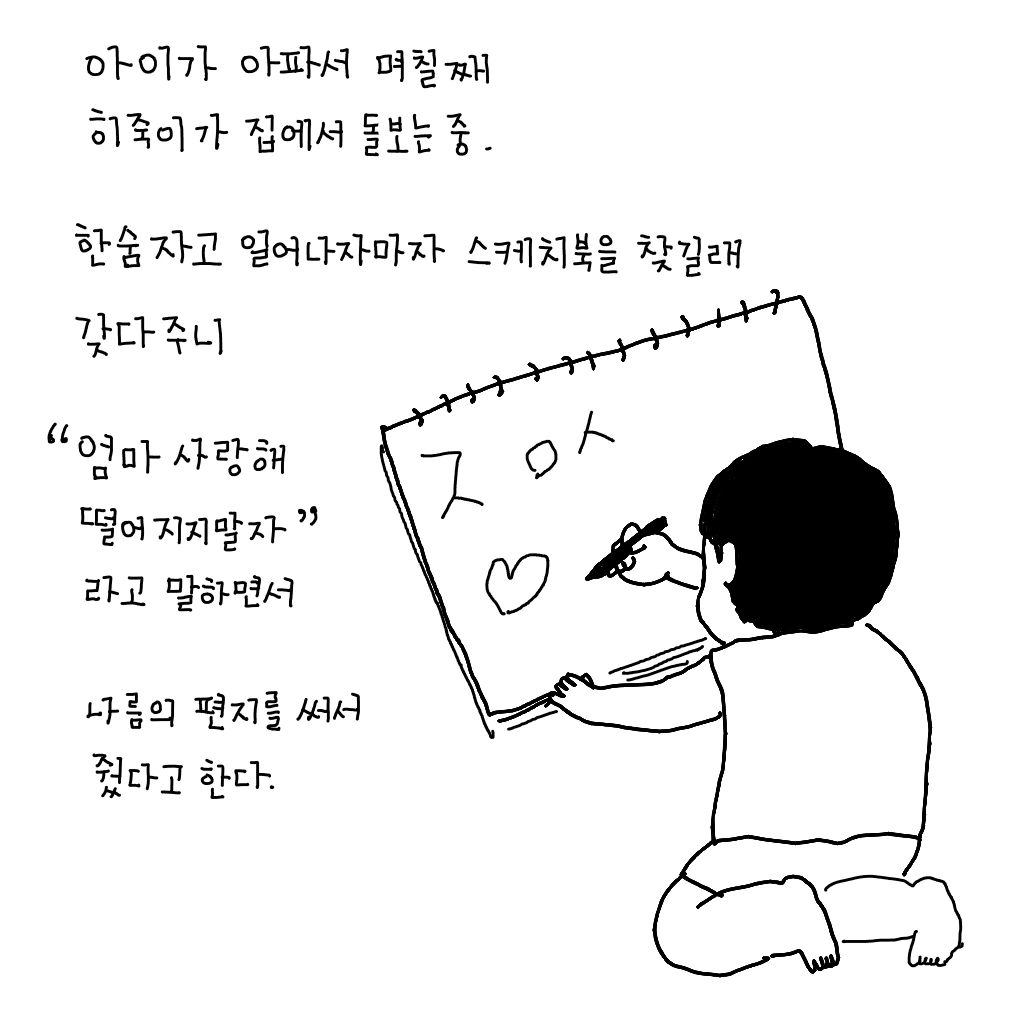 아이가 아파서 며칠째
히죽이가 집에서 돌보는 중.
한숨 자고 일어나자마자 스케치북을 찾길래
갖다주니
“엄마 사랑해
떨어지지말자”
라고 말하면서
나름의 편지를 써서
줬다고 한다.
ㅈ ㅇ ㅅ
♡